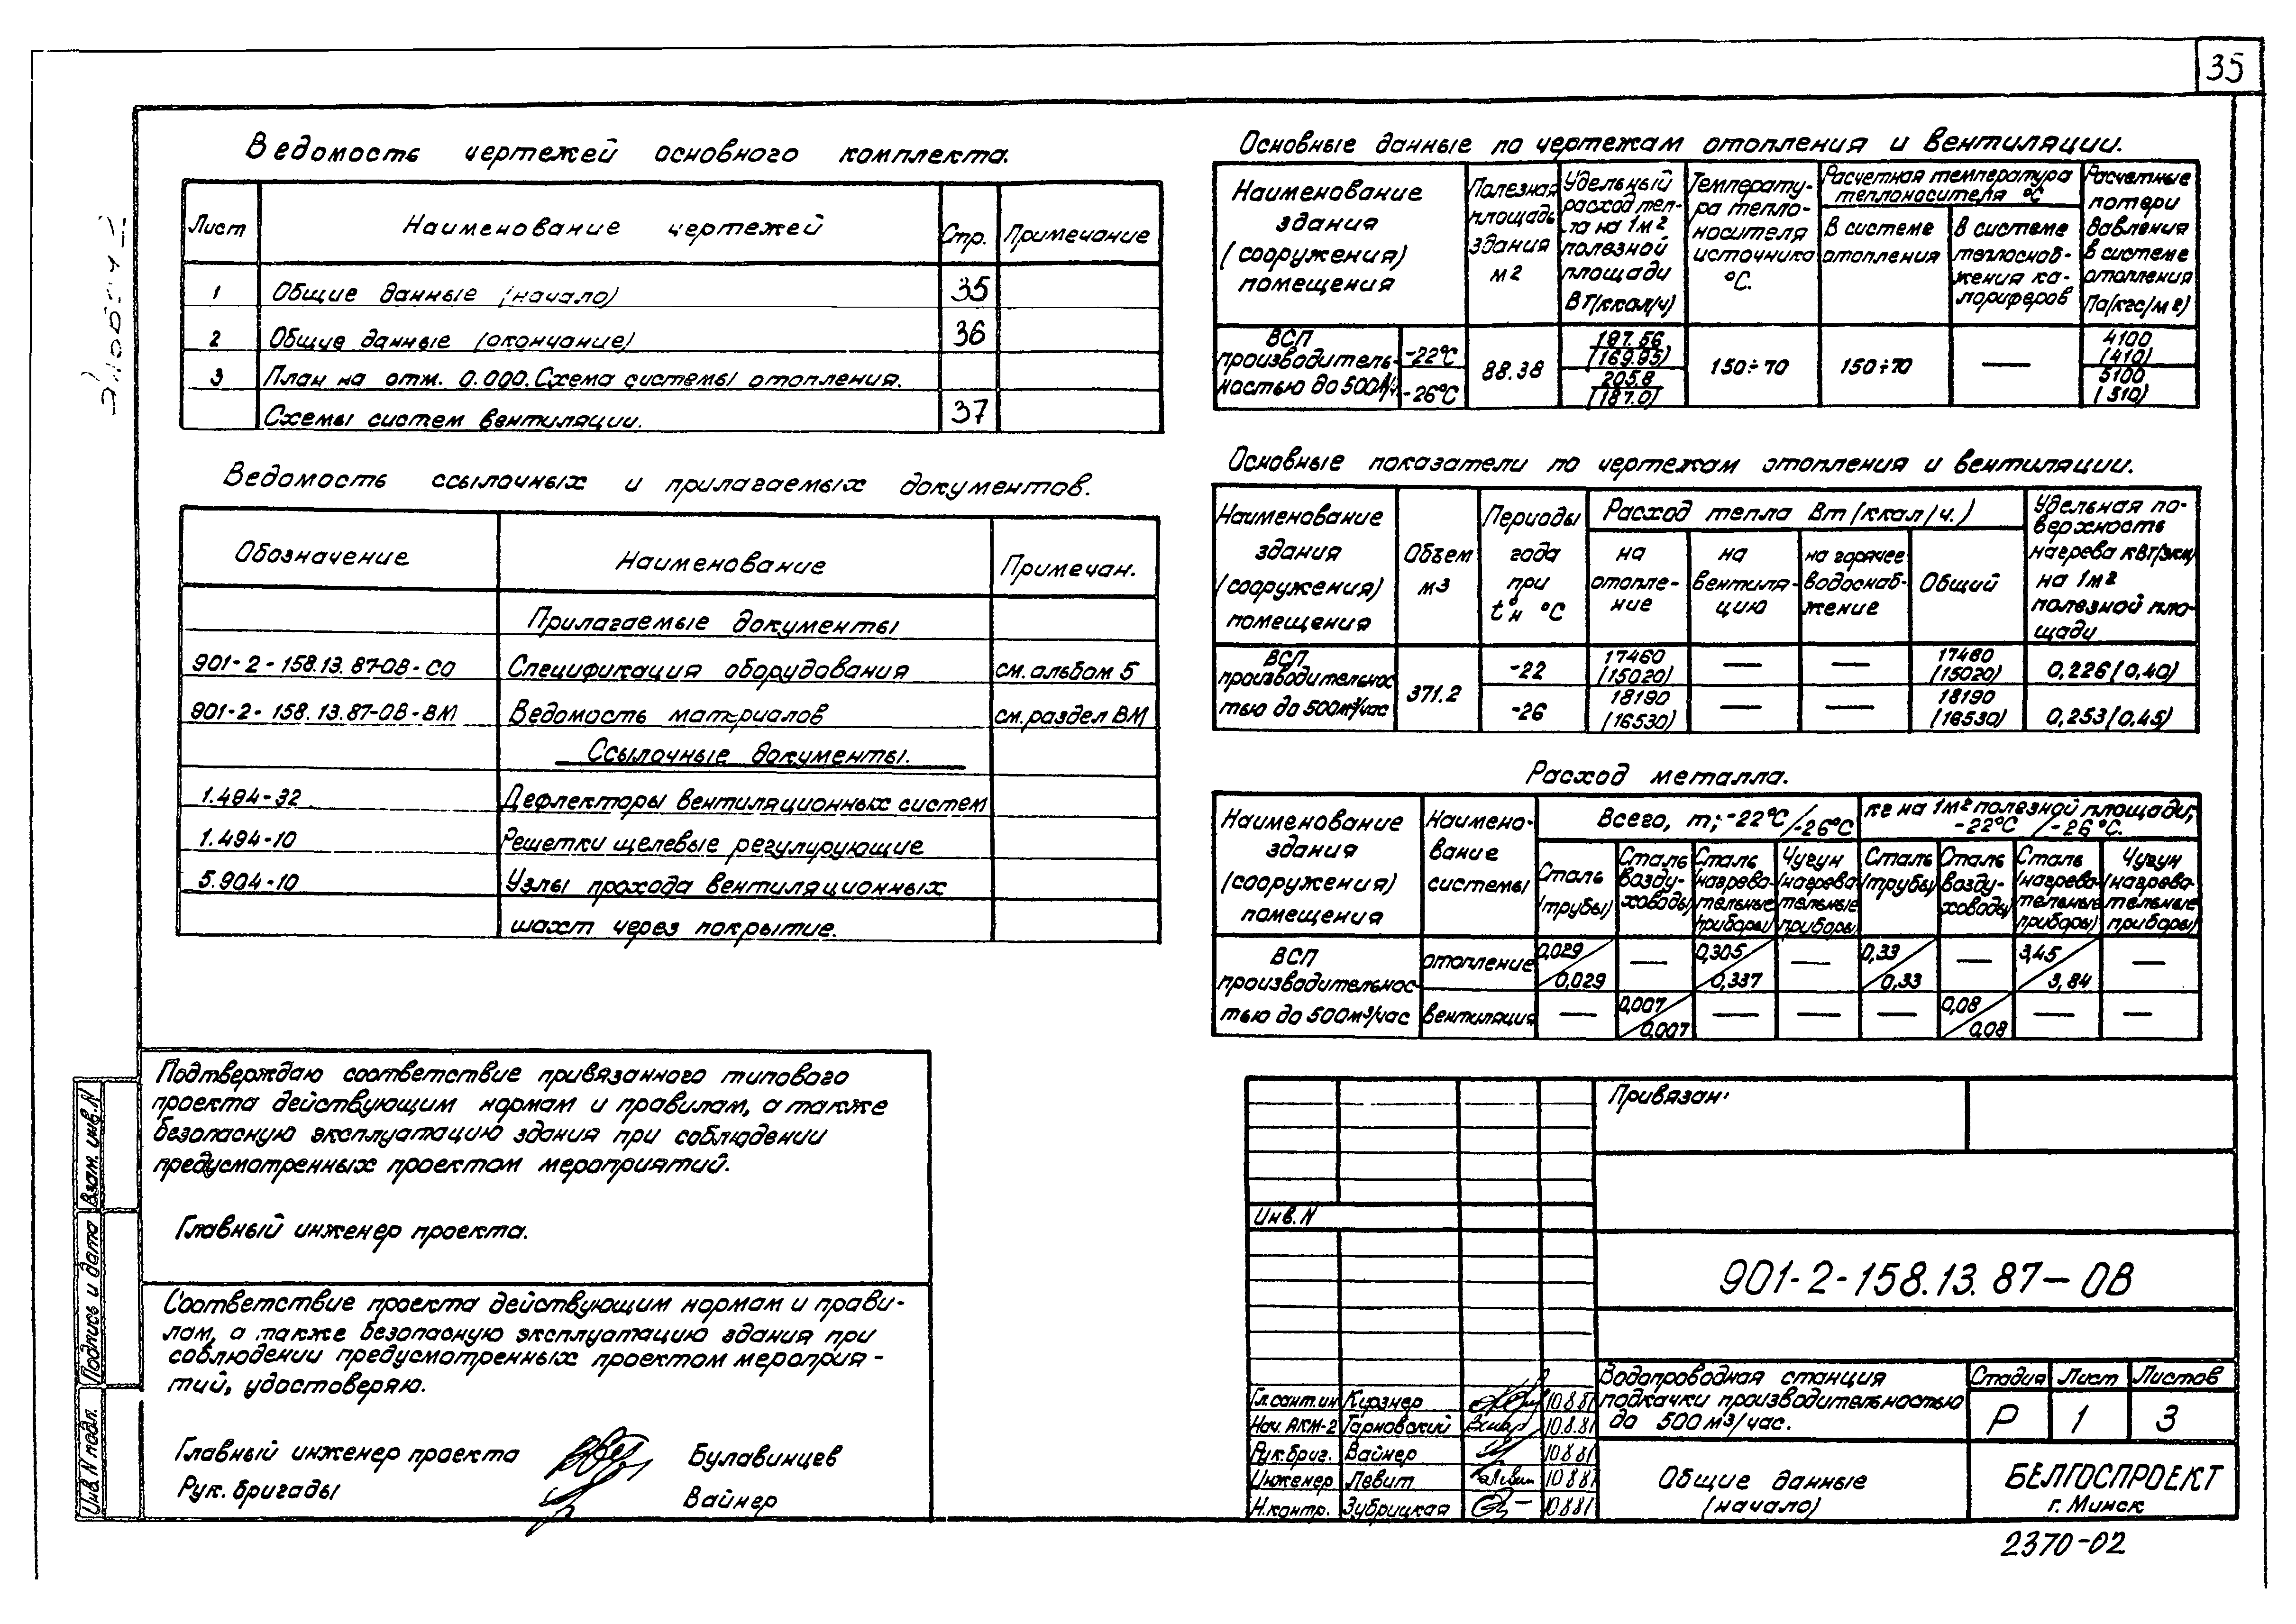 35
Ведомость чертежей основного комплекта.
Лист Наименование чертежей Стр. Примечание
1 Общие данные (начало) 35
2 Общие данные (окончание) 36
3 План на отм. 0.000. Схема системы отопления.
Схемы систем вентиляции. 37
Ведомость ссылочных и прилагаемых документов.
Обозначение Наименование Примечан.
Прилагаемые документы
901-2-158.13.87-ОВ-СО Спецификация оборудования см. альбом 5
901-2-158.13.87-ОВ-ВМ Ведомость материалов см. раздел ВМ
Ссылочные документы.
1.494-32 Дефлекторы вентиляционных систем
1.494-10 Решетки щелевые регулирующие
5.904-10 Узлы прохода вентиляционных
шахт через покрытие.
Подтверждаю соответствие привязанного типового
проекта действующим нормам и правилам, а также
безопасную эксплуатацию здания при соблюдении
предусмотренных проектом мероприятий.
Главный инженер проекта.
Соответствие проекта действующим нормам и прави-
лам, а также безопасную эксплуатацию здания при
соблюдении предусмотренных проектом мероприя-
тий, удостоверяю.
Главный инженер проекта Булавинцев
Рук. бригады Вайнер
Взам. инв. N
Подпись и дата
Инв. N подл.
Основные данные по чертежам отопления и вентиляции.
Наименование здания (сооружения) помещения
Полезная площадь здания м2
Удельный расход тепла на 1м2 полезной площади Вт(ккал/ч)
Температу-ра тепло-носителя источника °С.
Расчетная температура теплоносителя °С
В системе отопления
В системе теплоснаб-жения ка-лориферов
Расчетные потери давления в системе отопления Па(кгс/м2)
ВСП производитель-ностью до 500м³/ч.
-22°С 88.38 197.56 (169.95) 150÷70 150÷70 — 4100 (410)
-26°С 205.8 (187.0) 5100 (510)
Основные показатели по чертежам отопления и вентиляции.
Наименование здания (сооружения) помещения
Объем м3
Периоды года при t°н °С
Расход тепла Вт(ккал/ч.)
на отопле-ние
на вентиля-цию
на горячее водоснаб-жение
Общий
Удельная по-верхность нагрева кВт/экм на 1м2 полезной пло-щади
ВСП производительнос-тью до 500м³/час 371.2
-22 17460 (15020) — — 17460 (15020) 0,226(0,40)
-26 18190 (16530) — — 18190 (16530) 0,253(0,45)
Расход металла.
Наименование здания (сооружения) помещения
Наимено-вание системы
Всего, т; -22°С/-26°С
кг на 1м2 полезной площади; -22°С/-26°С.
Сталь (трубы)
Сталь возду-ховоды
Сталь (нагрева-тельные приборы)
Чугун (нагрева-тельные приборы)
Сталь (трубы)
Сталь возду-ховоды
Сталь (нагрева-тельные приборы)
Чугун (нагрева-тельные приборы)
ВСП производительнос-тью до 500м³/час
отопление 0,029/0,029 — 0,305/0,337 — 0,33/0,33 — 3,45/3,84 —
вентиляция — 0,007/0,007 — — — 0,08/0,08 — —
Привязан:
Инв. N
901-2-158.13.87-ОВ
Гл.сант.ин Кирзнер
Нач. АКМ-2 Тарновский
Рук. бриг. Вайнер
Инженер Левит
Н.контр. Зубрицкая
Водопроводная станция
подкачки производительностью
до 500 м³/час.
Стадия Лист Листов
Р 1 3
Общие данные
(начало)
БЕЛГОСПРОЕКТ
г. Минск
2370-02